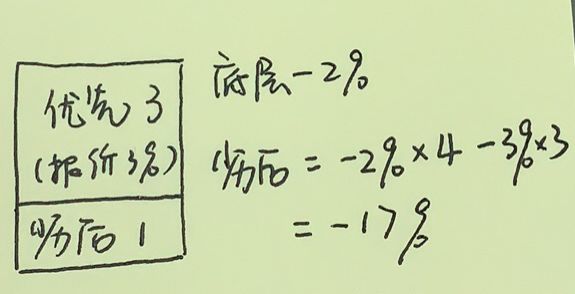 优先 3
(报价 3%)
劣后 1
底层 -2%
劣后 = -2% × 4 - 3% × 3
= -17%